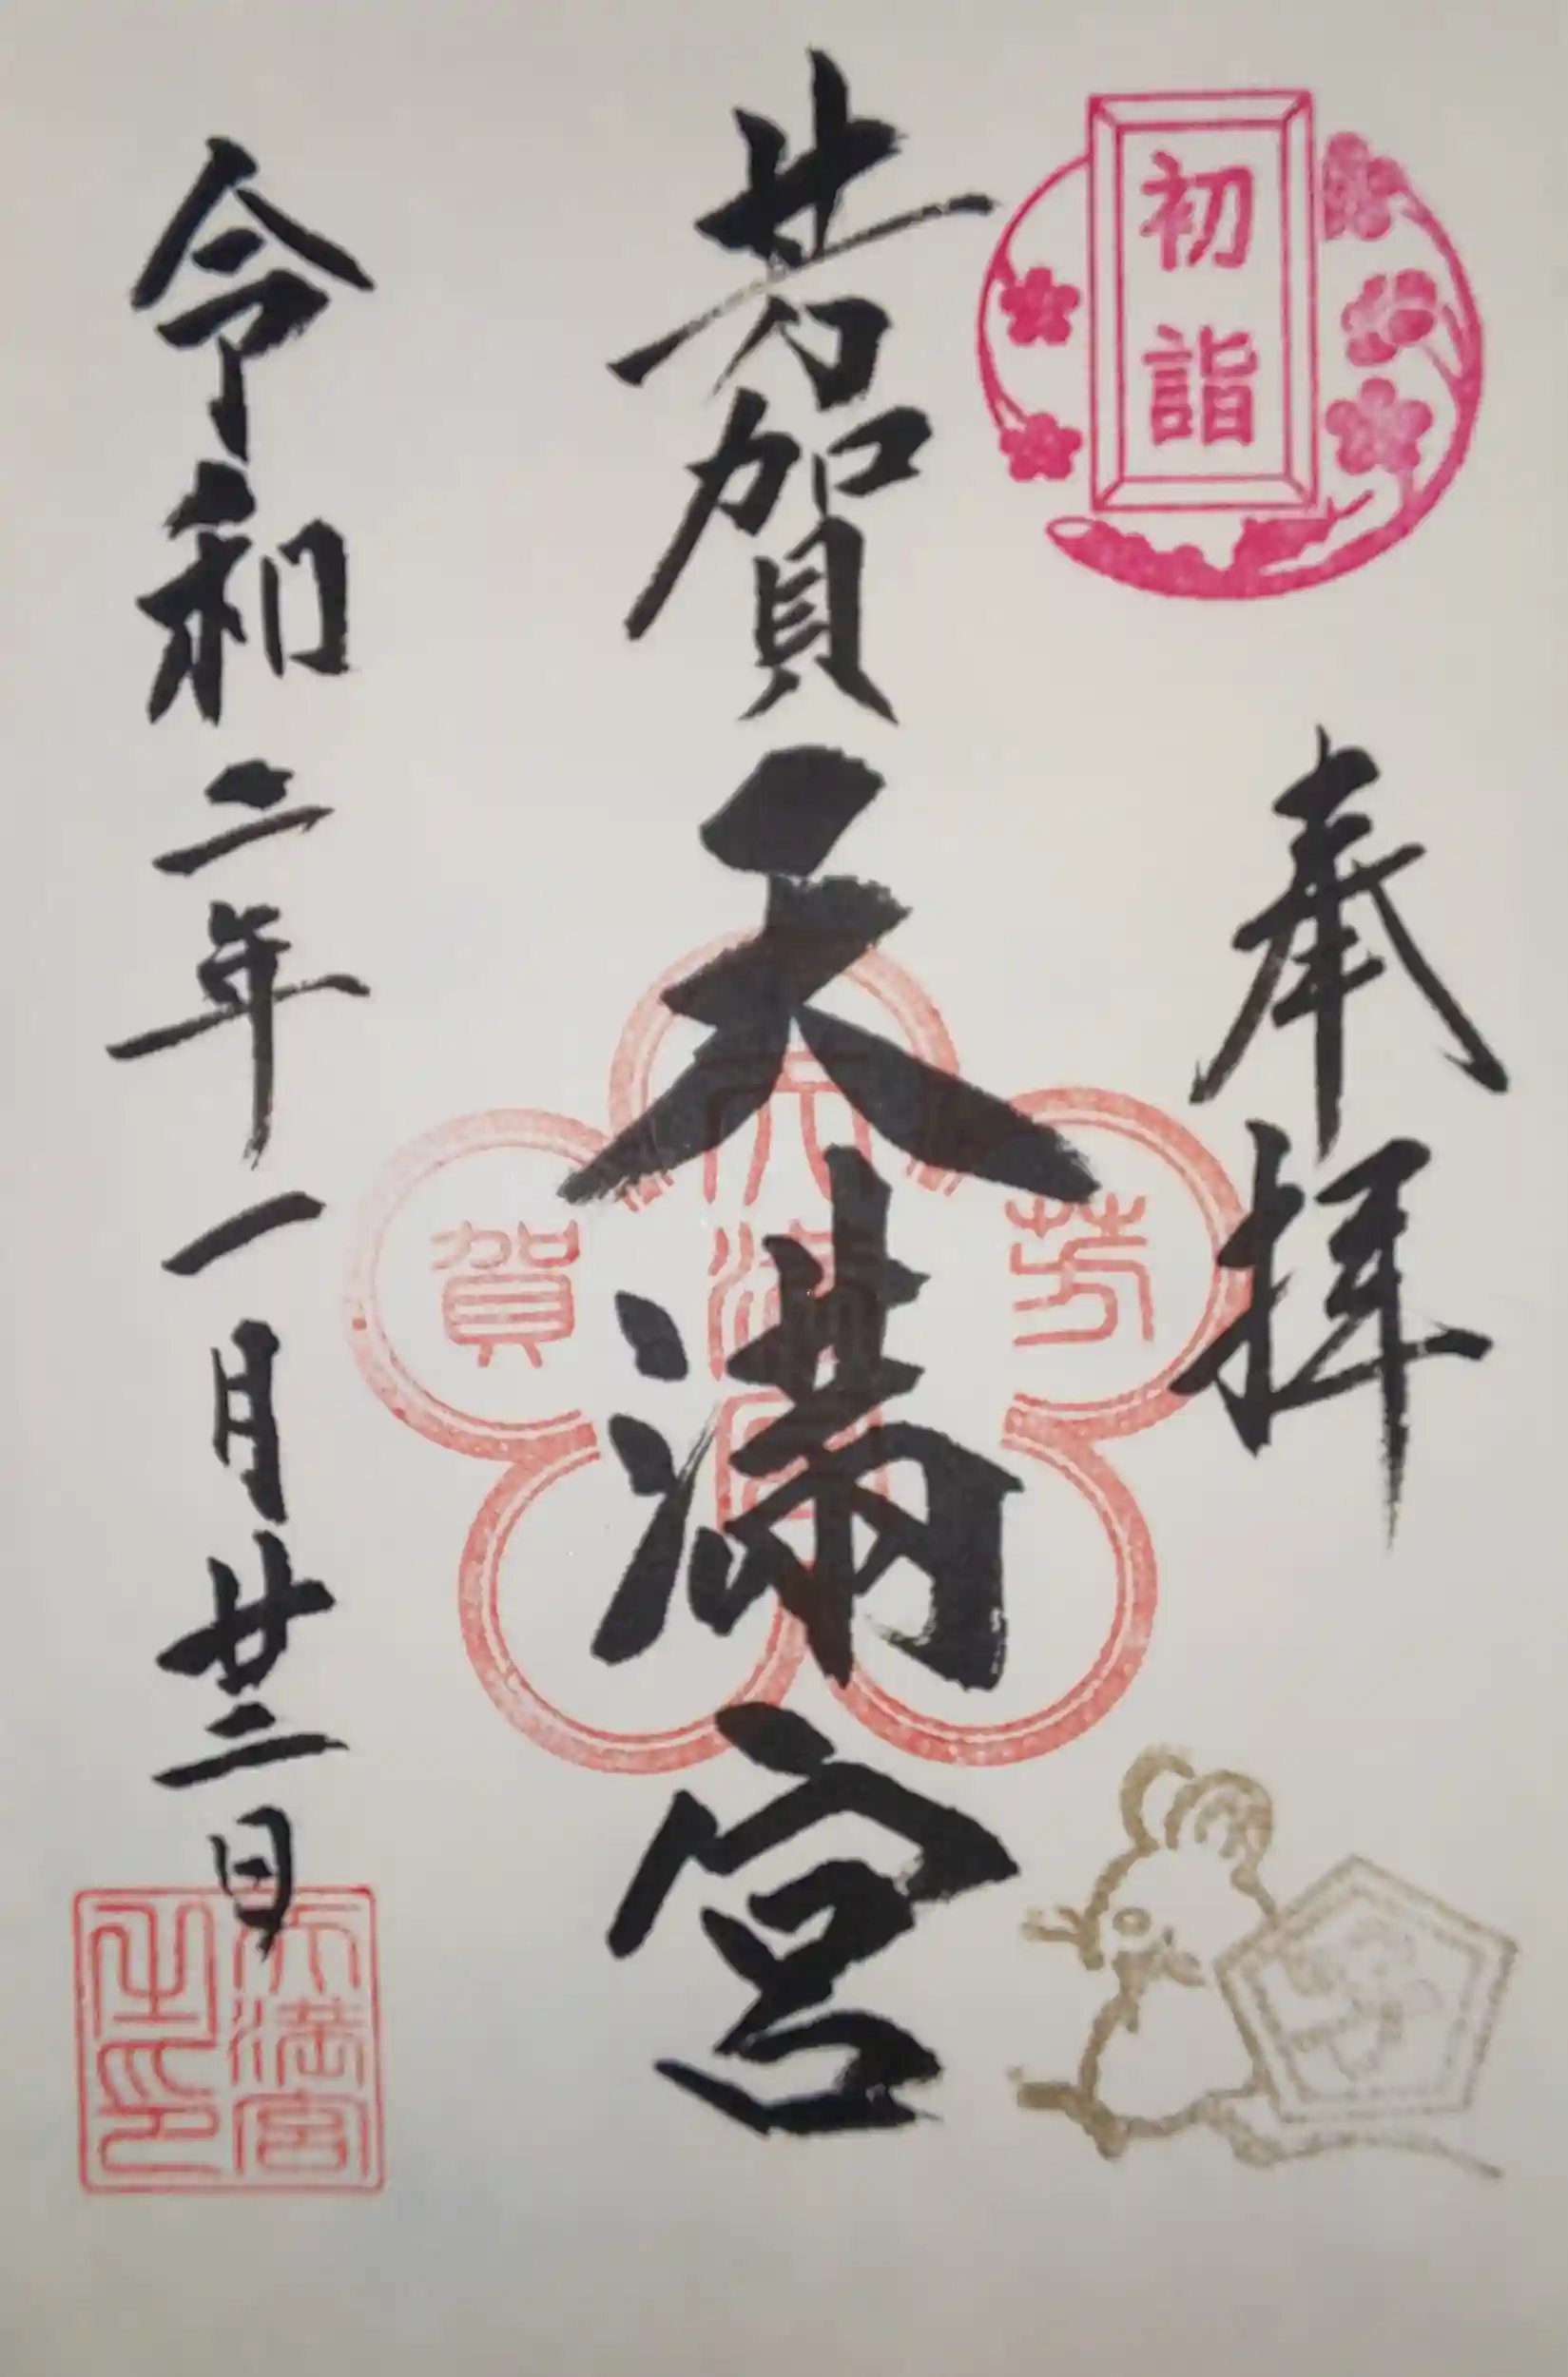 初詣
奉拝
芳賀天満宮
芳
天満宮
賀
令和二年一月廿二日
天満宮
之印